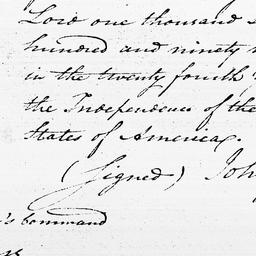 Lord one thousand
hundred and ninety
in the twenty fourth
the Independence of the
States of America.
(Signed) Joh
's Command